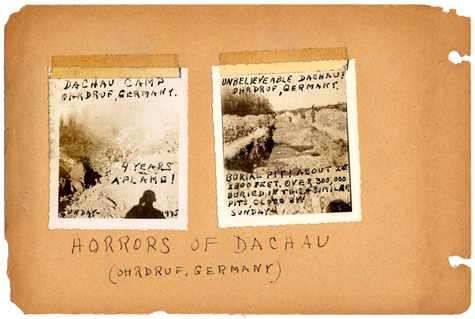 DACHAU CAMP
OHRDRUF, GERMANY.
4 YEARS
AFLAME!
SUNDAY
1945
UNBELIEVEABLE DACHAU!
OHRDRUF, GERMANY.
BURIAL PIT! ABOUT
X200 FEET. OVER 300,000
BURIED IN THIS & SIMILAR
PITS, CLOSE BY!
SUNDAY
HORRORS OF DACHAU
(OHRDRUF, GERMANY)